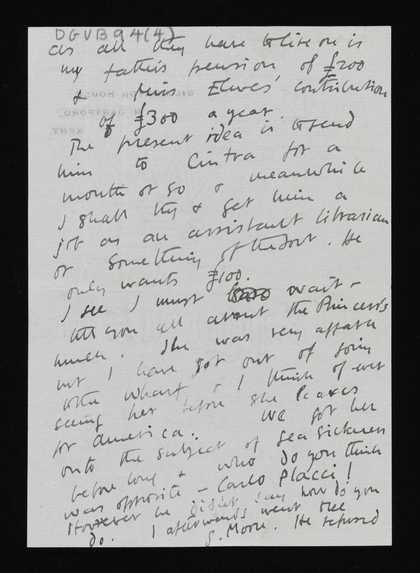 DGVB94(4)
as all they have to live on is
my father's pension of £200
& Mrs Elwes' contribution
of £300 a year.
The present idea is to send
him to Cintra for a
month or so & meanwhile
I shall try & get him a
job as an assistant librarian
or something of the sort. He
only wants £100.
I see I must wait -
tell you all about the Princess's
lunch. She was very affable
but I have got out of going
to the wharf & I think of ever
seeing her before she leaves
for America. We got her
onto the subject of sea sickness
before long & who do you think
was opposite - Carlo Placci!
However he didn't say how do you
do. I afterwards went to see
G. Moore. He refused